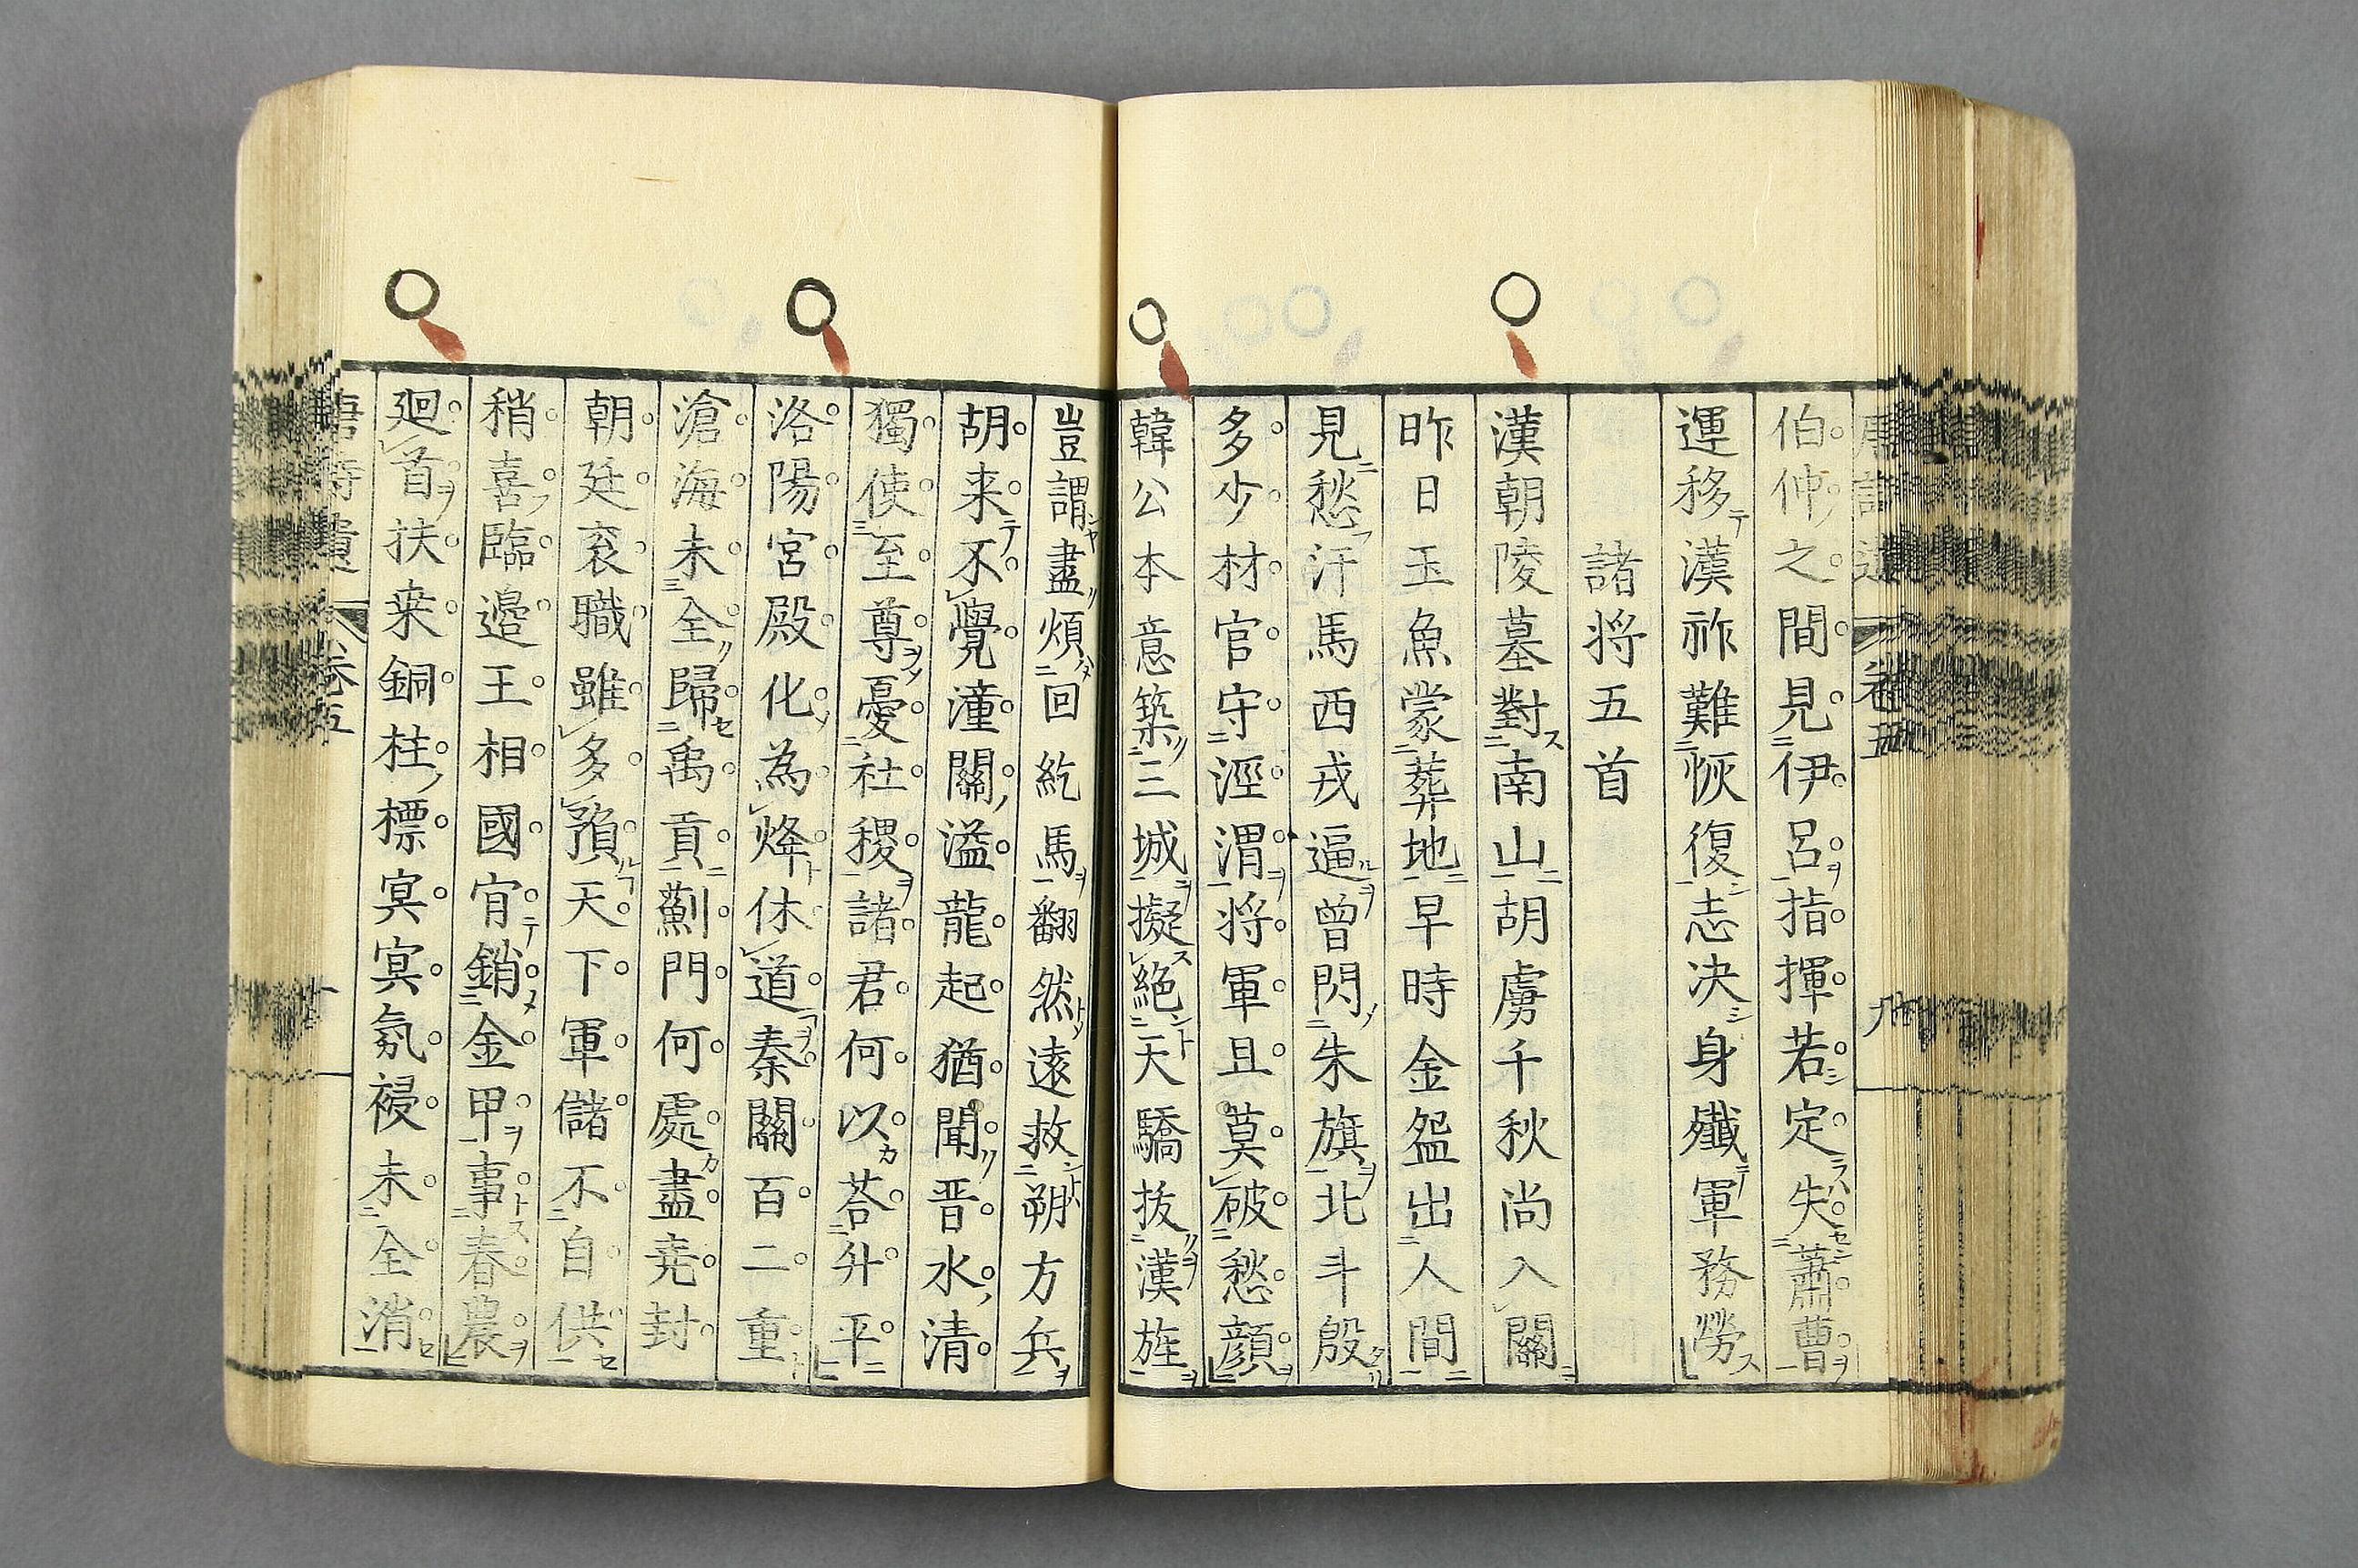 伯仲之間見伊呂指揮若定失蕭曹
運移漢祚難恢復志决身殲軍務勞
諸将五首
漢朝陵墓對南山胡虜千秋尚入關
昨日玉魚蒙葬地早時金盌出人間
見愁汗馬西戎逼曾閃朱旗北斗殷
多少材官守涇渭将軍且莫破愁顔
韓公本意築三城擬絶天驕拔漢旌
豈謂盡煩回紇馬翻然遠救朔方兵
胡来不覺潼關溢龍起猶聞晋水清
獨使至尊憂社稷諸君何以荅升平
洛陽宮殿化為烽休道秦關百二重
滄海未全歸禹貢薊門何處盡堯封
朝廷衮職雖多預天下軍儲不自供
稍喜臨邉王相國肯銷金甲事春農
廻首扶桒銅柱標冥冥氛祲未全消
卷五